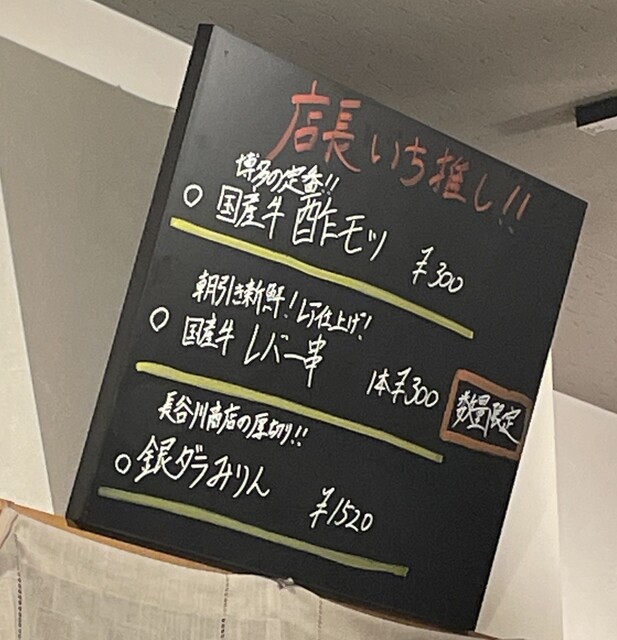 店長いち推し!!
博多の定番!!
○ 国産牛 酢モツ ¥300
朝引き新鮮!レア仕上げ!
○ 国産牛 レバー串 1本¥300 数量限定
長谷川商店の厚切り!!
○ 銀ダラみりん ¥1520